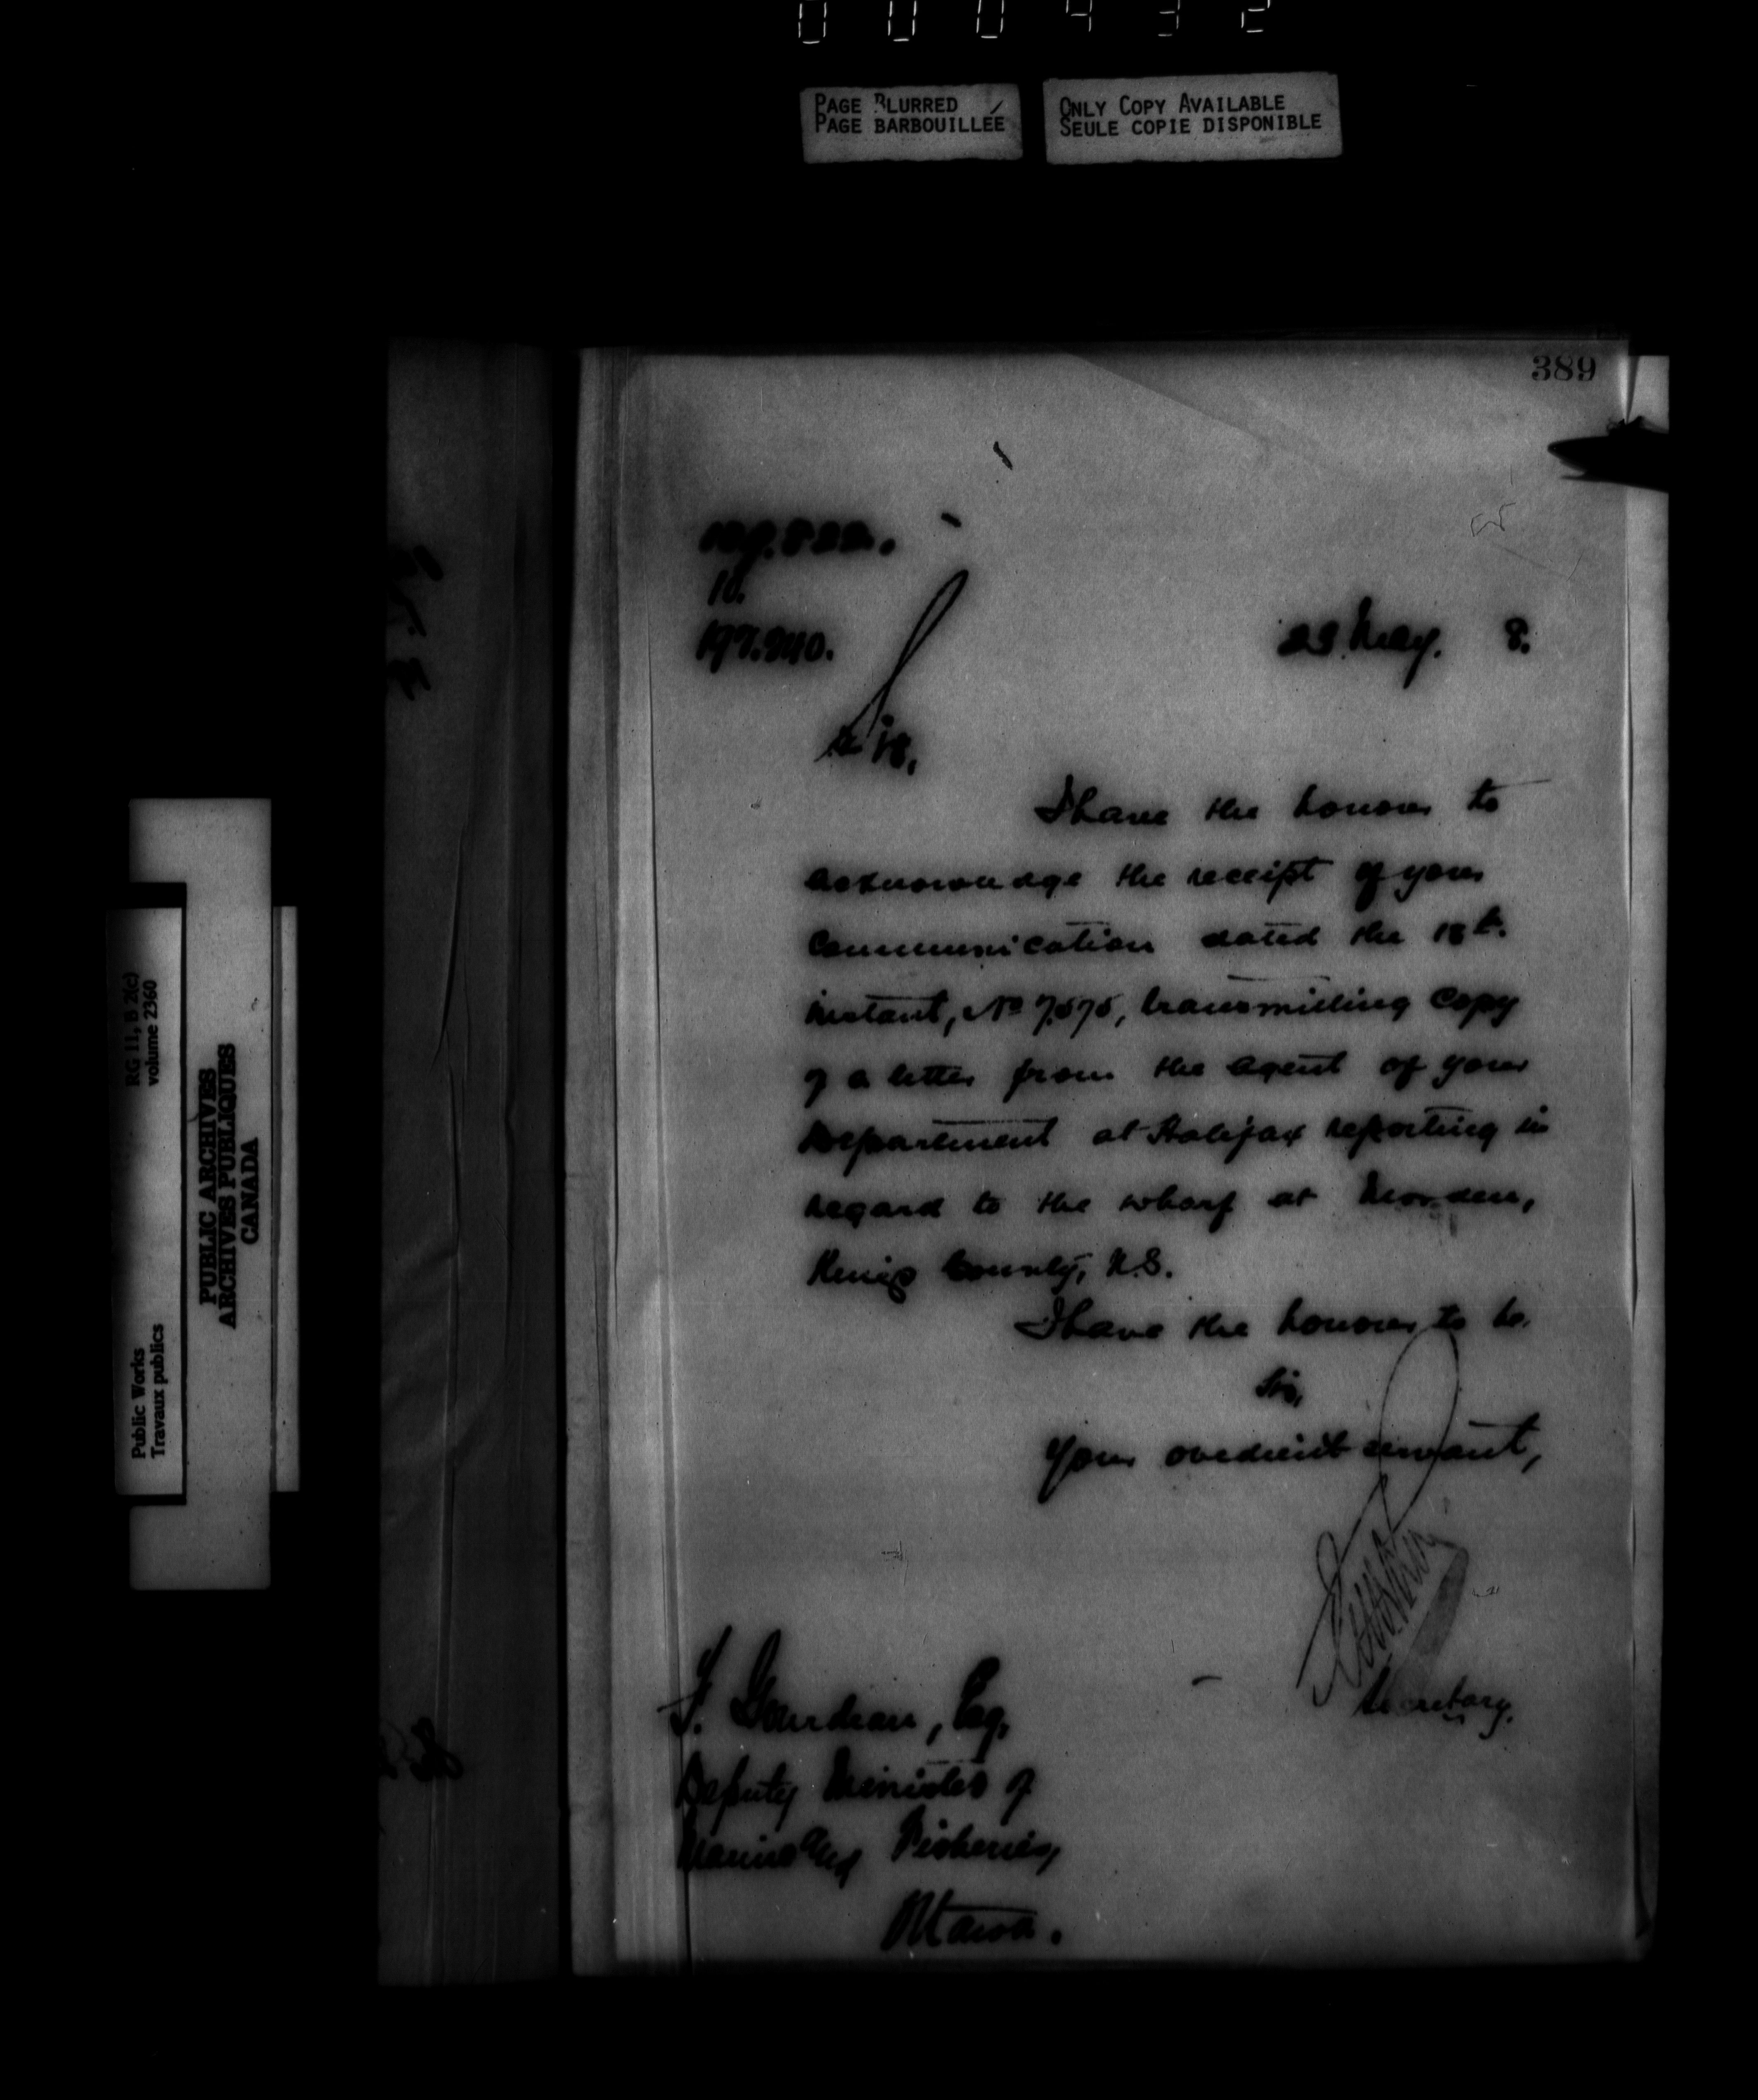 000432
PAGE BLURRED
PAGE BARBOUILLÉE
ONLY COPY AVAILABLE
SEULE COPIE DISPONIBLE
389
10.
197.940.
23 May. 8.
Sir,
I have the honour to
acknowledge the receipt of your
Communication dated the 18th.
instant, No 7,575, transmitting Copy
of a letter from the Agent of your
Department at Halifax reporting in
regard to the wharf at Morden,
Kings County, N.S.
I have the honour to be
Sir,
Your obedient servant,
Secretary.
F. Gourdeau, Esq,
Deputy Minister of
Marine and Fisheries,
Ottawa.
RG 11, B 2(c)
volume 2360
PUBLIC ARCHIVES
ARCHIVES PUBLIQUES
CANADA
Public Works
Travaux publics